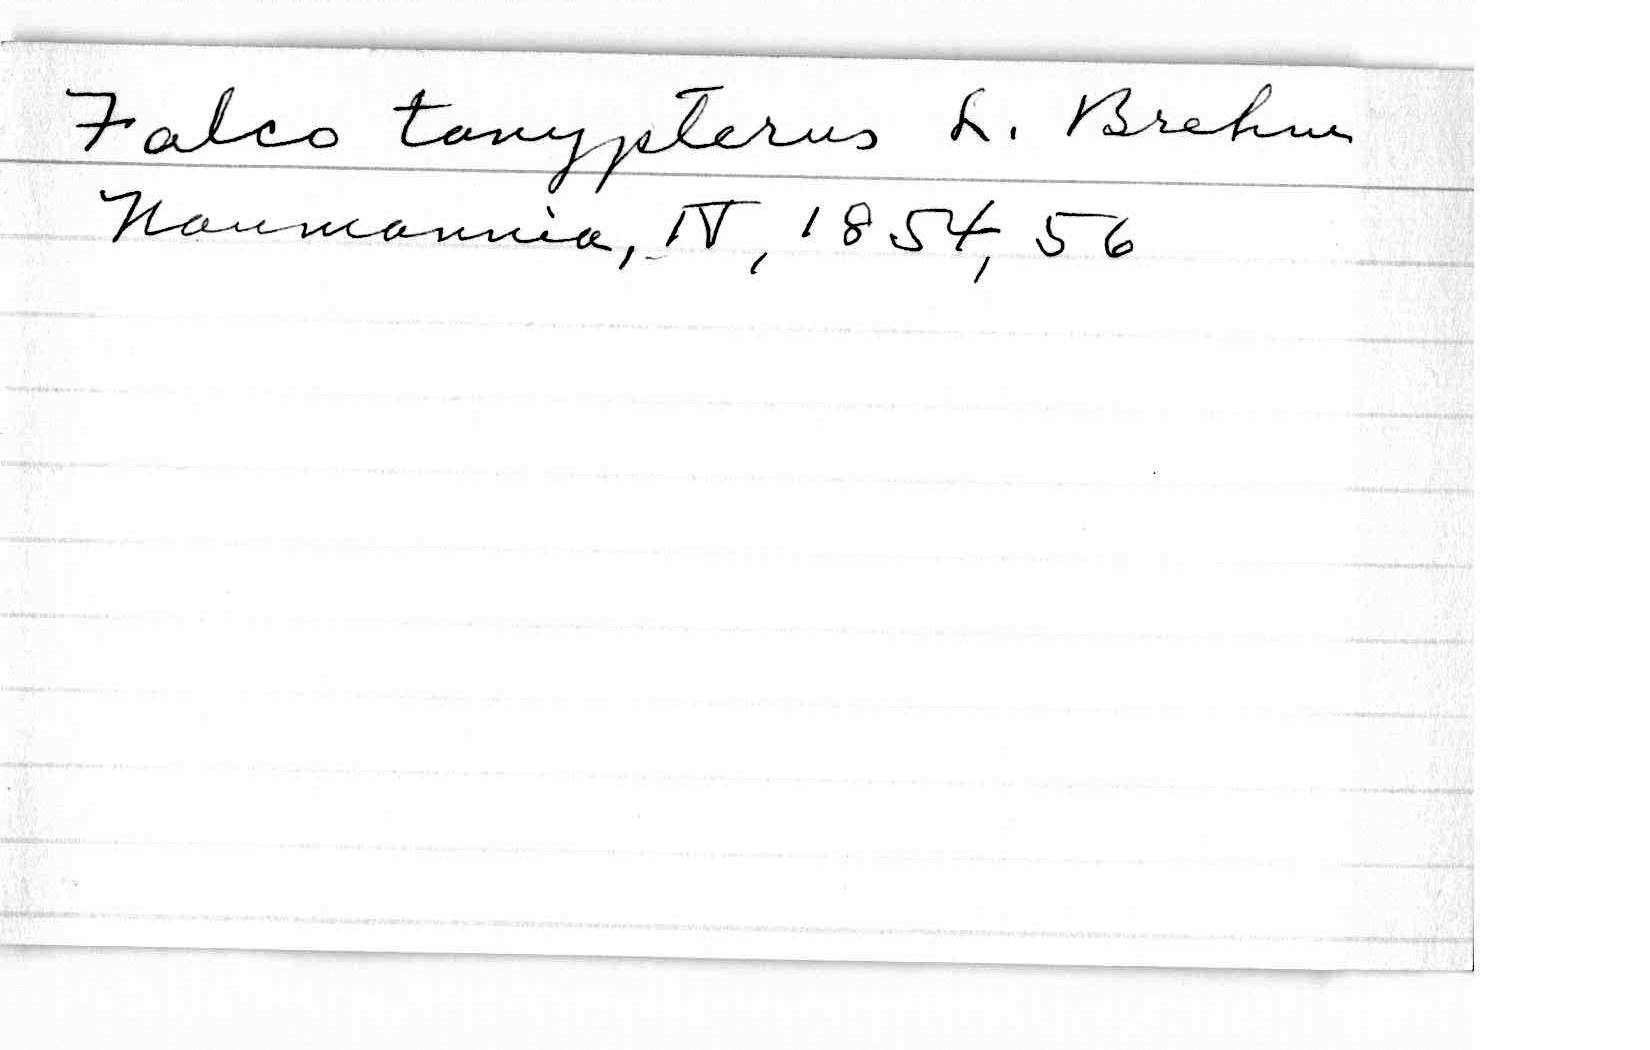 Falco tanypterus L. Brehm
Naumannia, IV, 1854, 56